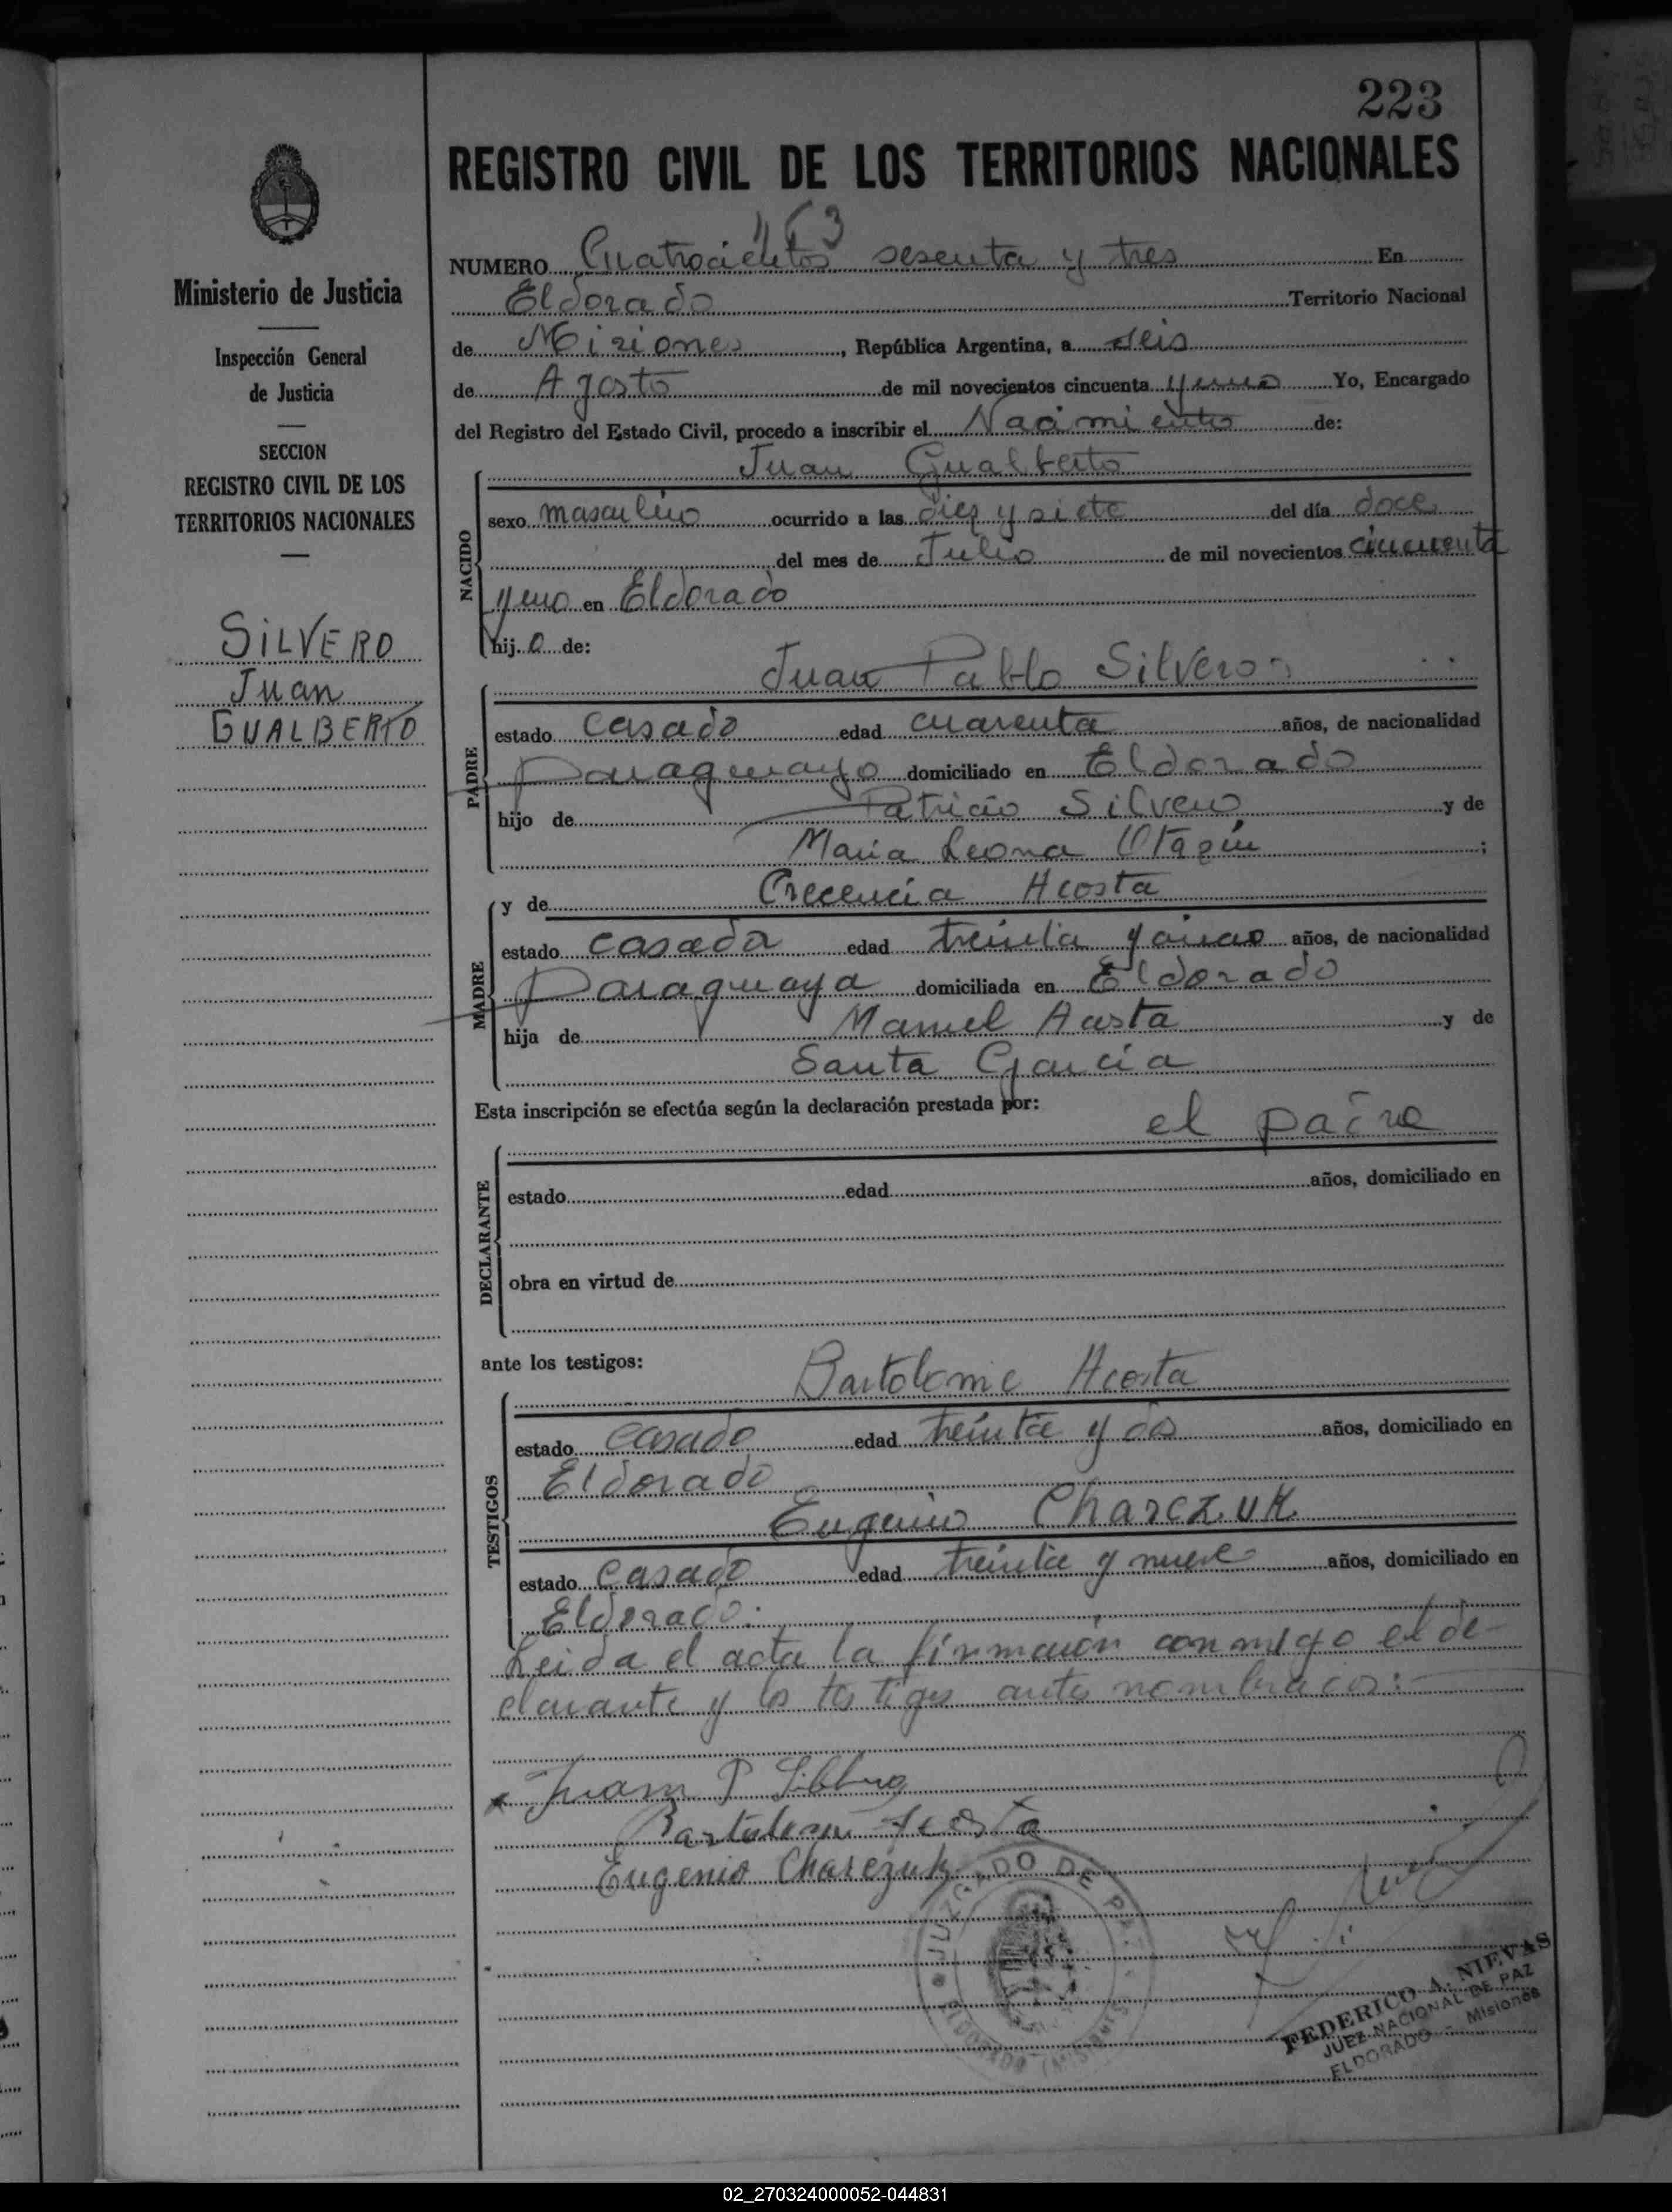 223
REGISTRO CIVIL DE LOS TERRITORIOS NACIONALES
Ministerio de Justicia
Inspección General
de Justicia
SECCION
REGISTRO CIVIL DE LOS
TERRITORIOS NACIONALES
SILVERO
Juan
GUALBERTO
NUMERO Cuatrocientos sesenta y tres En
Eldorado Territorio Nacional
de Misiones, República Argentina, a seis
de Agosto de mil novecientos cincuenta y uno Yo, Encargado
del Registro del Estado Civil, procedo a inscribir el Nacimiento de:
Juan Gualberto
NACIDO
sexo masculino ocurrido a las diez y siete del día doce
del mes de Julio de mil novecientos cincuenta
y uno en Eldorado
hijo de:
Juan Pablo Silvero
PADRE
estado casado edad cuarenta años, de nacionalidad
Paraguayo domiciliado en Eldorado
hijo de Patricio Silvero y de
Maria Leona Otazú;
y de Crecencia Acosta
MADRE
estado casada edad treinta y cinco años, de nacionalidad
Paraguaya domiciliada en Eldorado
hija de Manuel Acosta y de
Santa Garcia
Esta inscripción se efectúa según la declaración prestada por:
el padre
DECLARANTE
estado edad años, domiciliado en
obra en virtud de
ante los testigos:
Bartolome Acosta
TESTIGOS
estado casado edad treinta y dos años, domiciliado en
Eldorado
Eugenio Charczuk
estado casado edad treinta y nueve años, domiciliado en
Eldorado.
Leida el acta la firmaron conmigo el de-
clarante y los testigos antes nombrados:
Juan P
Bartolome Acosta
Eugenio Charczuk
JUZGADO DE PAZ
ELDORADO (MISIONES)
FEDERICO A. NIEVAS
JUEZ NACIONAL DE PAZ
ELDORADO - Misiones
02_270324000052-044831